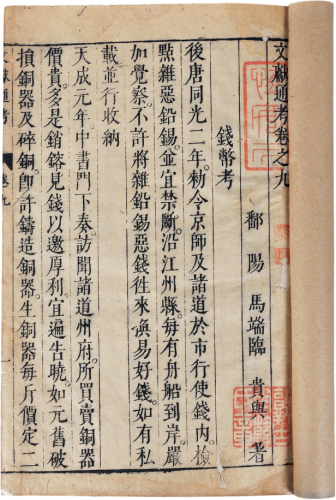 文獻通考卷之九
鄱陽馬端臨貴與著
錢幣考
後唐同光二年勑令京師及諸道於市行使錢內檢
點雜惡鉛錫並宜禁斷沿江州縣每有舟船到岸嚴
加覺察不許將雜鉛錫惡錢往來換易好錢如有私
載並行收納
天成元年中書門下奏訪聞諸道州府所買賣銅器
價貴多是銷鎔見錢以邀厚利宜遍告曉如元舊破
損銅器及碎銅即許鑄造銅器生銅器每斤價定二
文獻通考 卷九